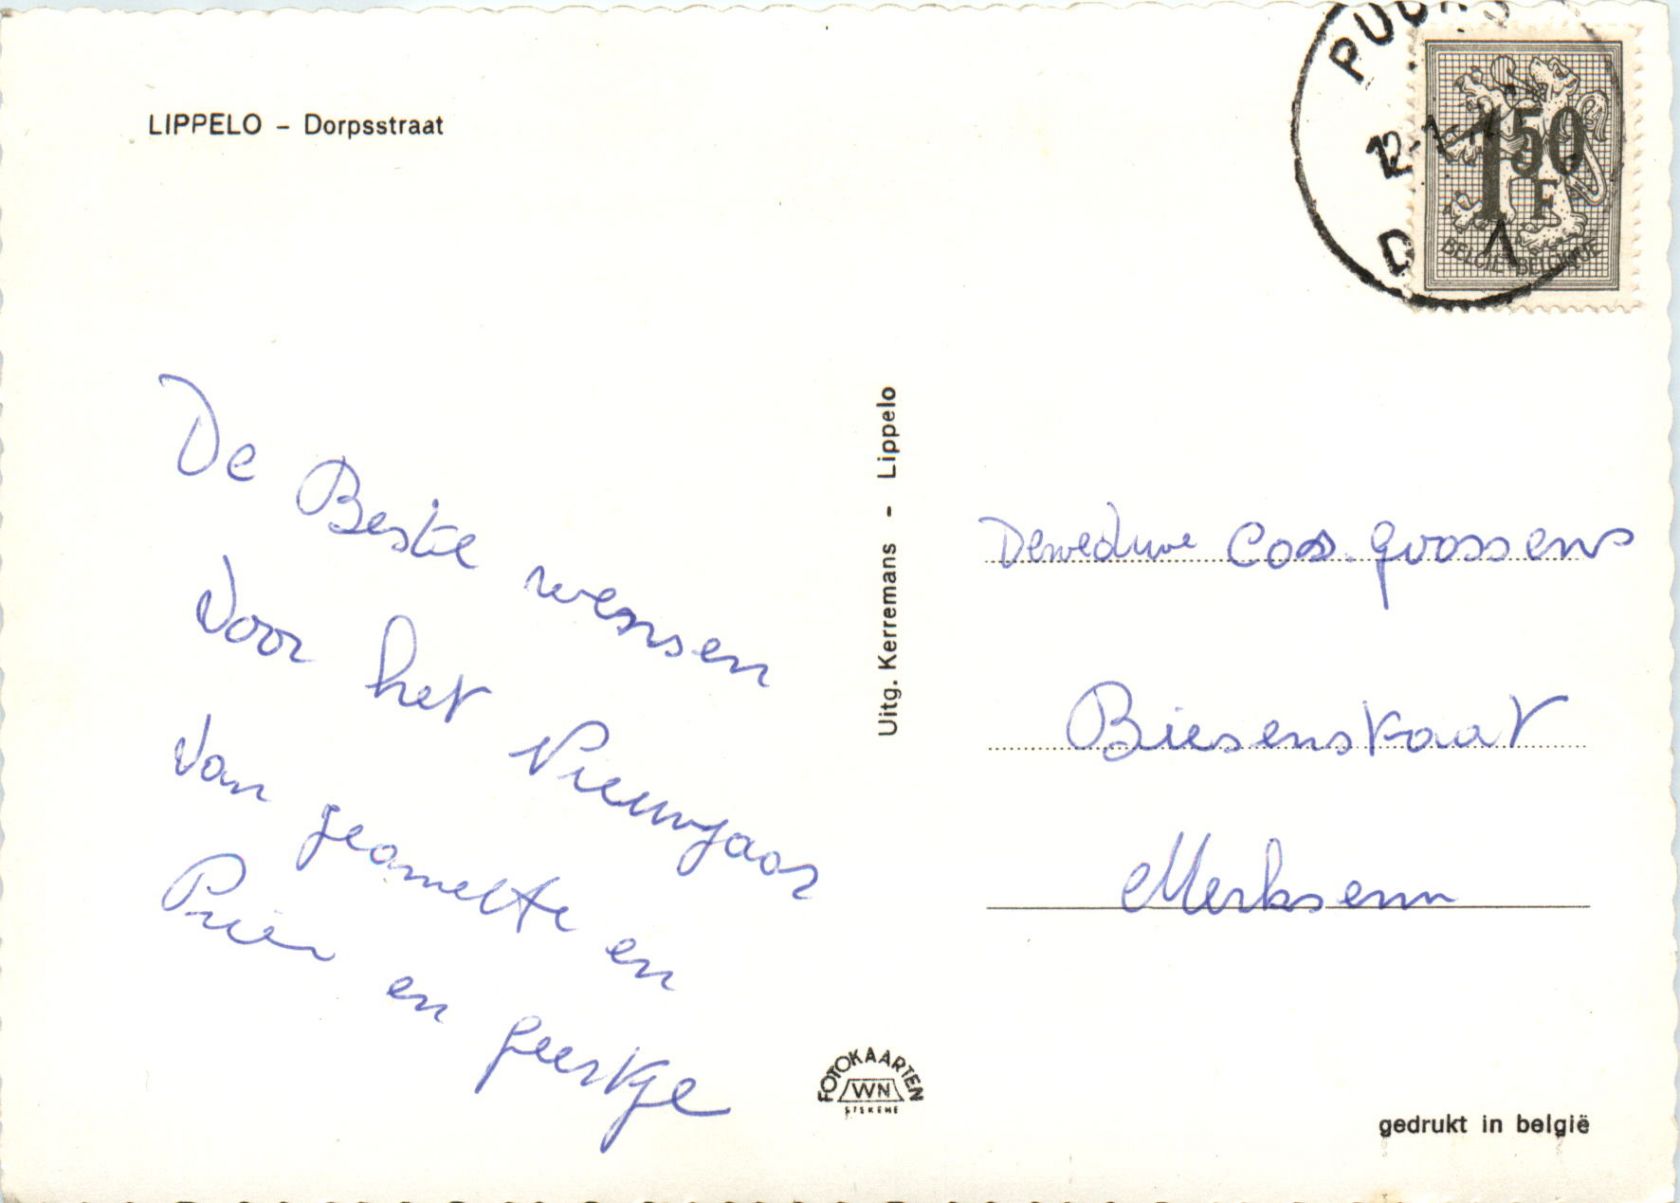 LIPPELO - Dorpsstraat
PUURS
12-1-
D 1
1,50
F
BELGIE-BELGIQUE
De Beste wensen
voor het Nieuwjaar
van
en
en geertje
Uitg. Kerremans - Lippelo
Deweduwe Cos. goossens
Biesenstraat
Merksem
FOTOKAARTEN
WN
STEKENE
gedrukt in belgië